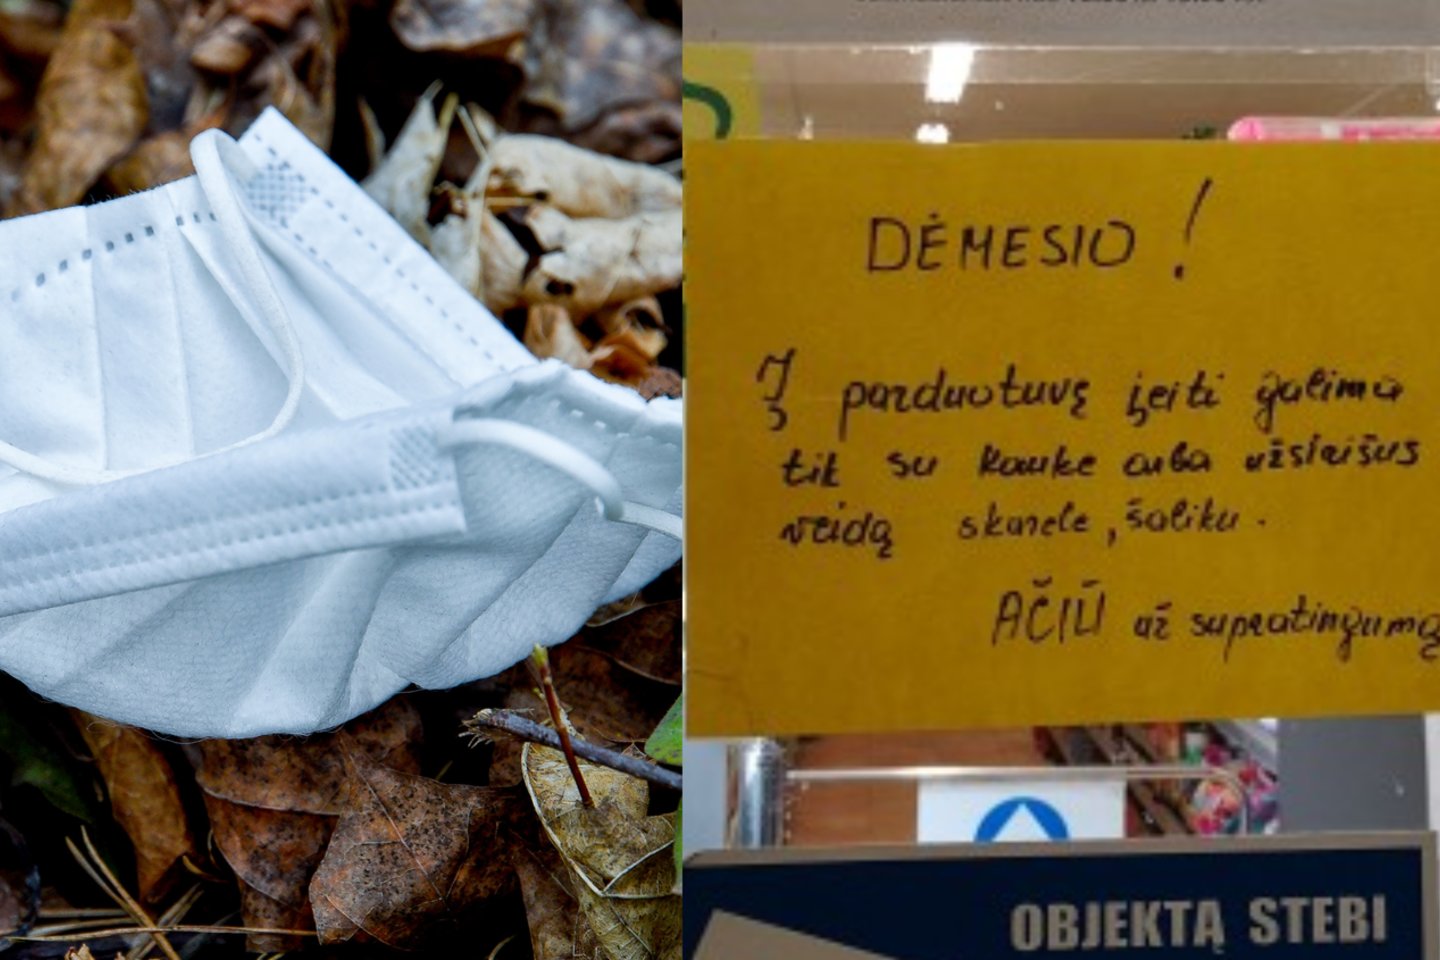 DĖMESIO!
Į parduotuvę įeiti galima
tik su kauke arba užsirišus
veidą skarele, šaliku.
AČIŪ už supratingumą
OBJEKTĄ STEBI